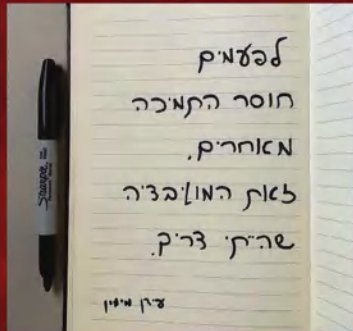 לפעמים
חוסר התמיכה
מאחרים,
זאת המוטיבציה
שהייתי צריך.
Sharpie